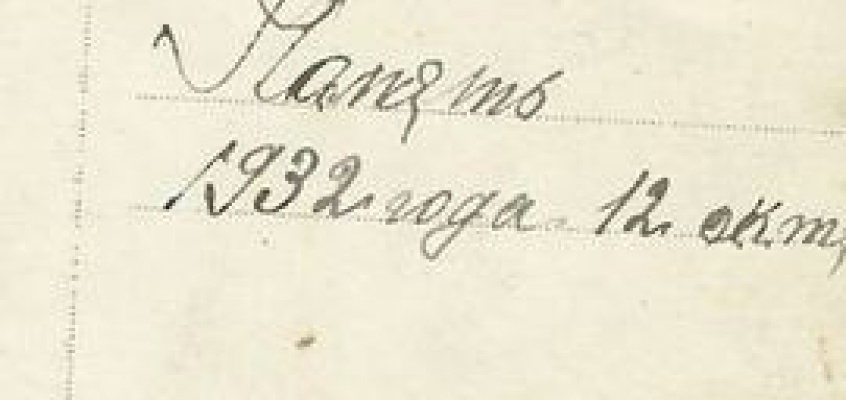 Панять
1932 года. 12 окт